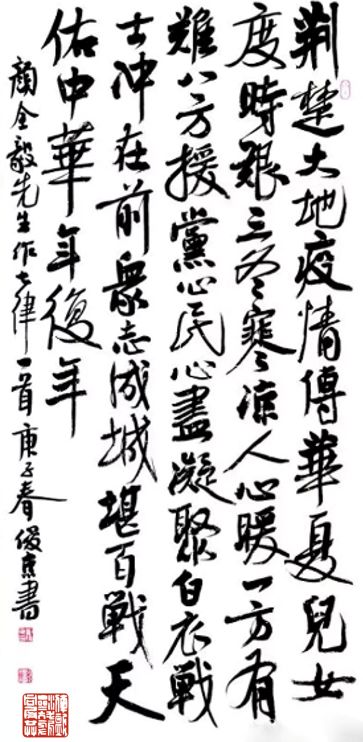 荆楚大地疫情傳華夏兒女
度時艱三冬寒凉人心暖一方有
難八方援黨心民心盡凝聚白衣戰
士冲在前衆志成城堪百戰天
佑中華年復年
顏全毅先生作七律一首庚子春俊京書